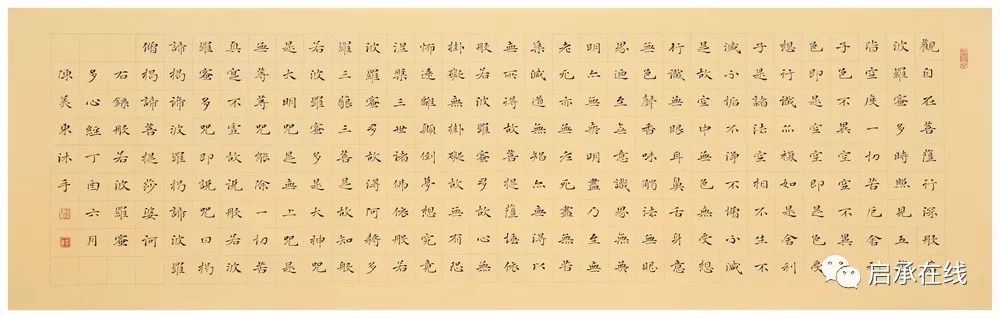 觀自在菩薩行深般若
波羅蜜多時照見五蘊
皆空度一切苦厄舍利
子色不異空空不異色
色即是空空即是色受
想行識亦復如是舍利
子是諸法空相不生不
滅不垢不淨不增不減
是故空中無色無受想
行識無眼耳鼻舌身意
無色聲香味觸法無眼
界乃至無意識界無無
明亦無無明盡乃至無
老死亦無老死盡無苦
集滅道無智亦無得以
無所得故菩提薩埵依
般若波羅蜜多故心無
掛礙無掛礙故無有恐
怖遠離顛倒夢想究竟
涅槃三世諸佛依般若
波羅蜜多故得阿耨多
羅三藐三菩提故知般
若波羅蜜多是大神咒
是大明咒是無上咒是
無等等咒能除一切苦
真實不虛故說般若波
羅蜜多咒即說咒曰揭
諦揭諦波羅揭諦波羅
僧揭諦菩提莎婆訶
右錄般若波羅蜜
多心經丁酉六月
陳美東沐手
启承在线